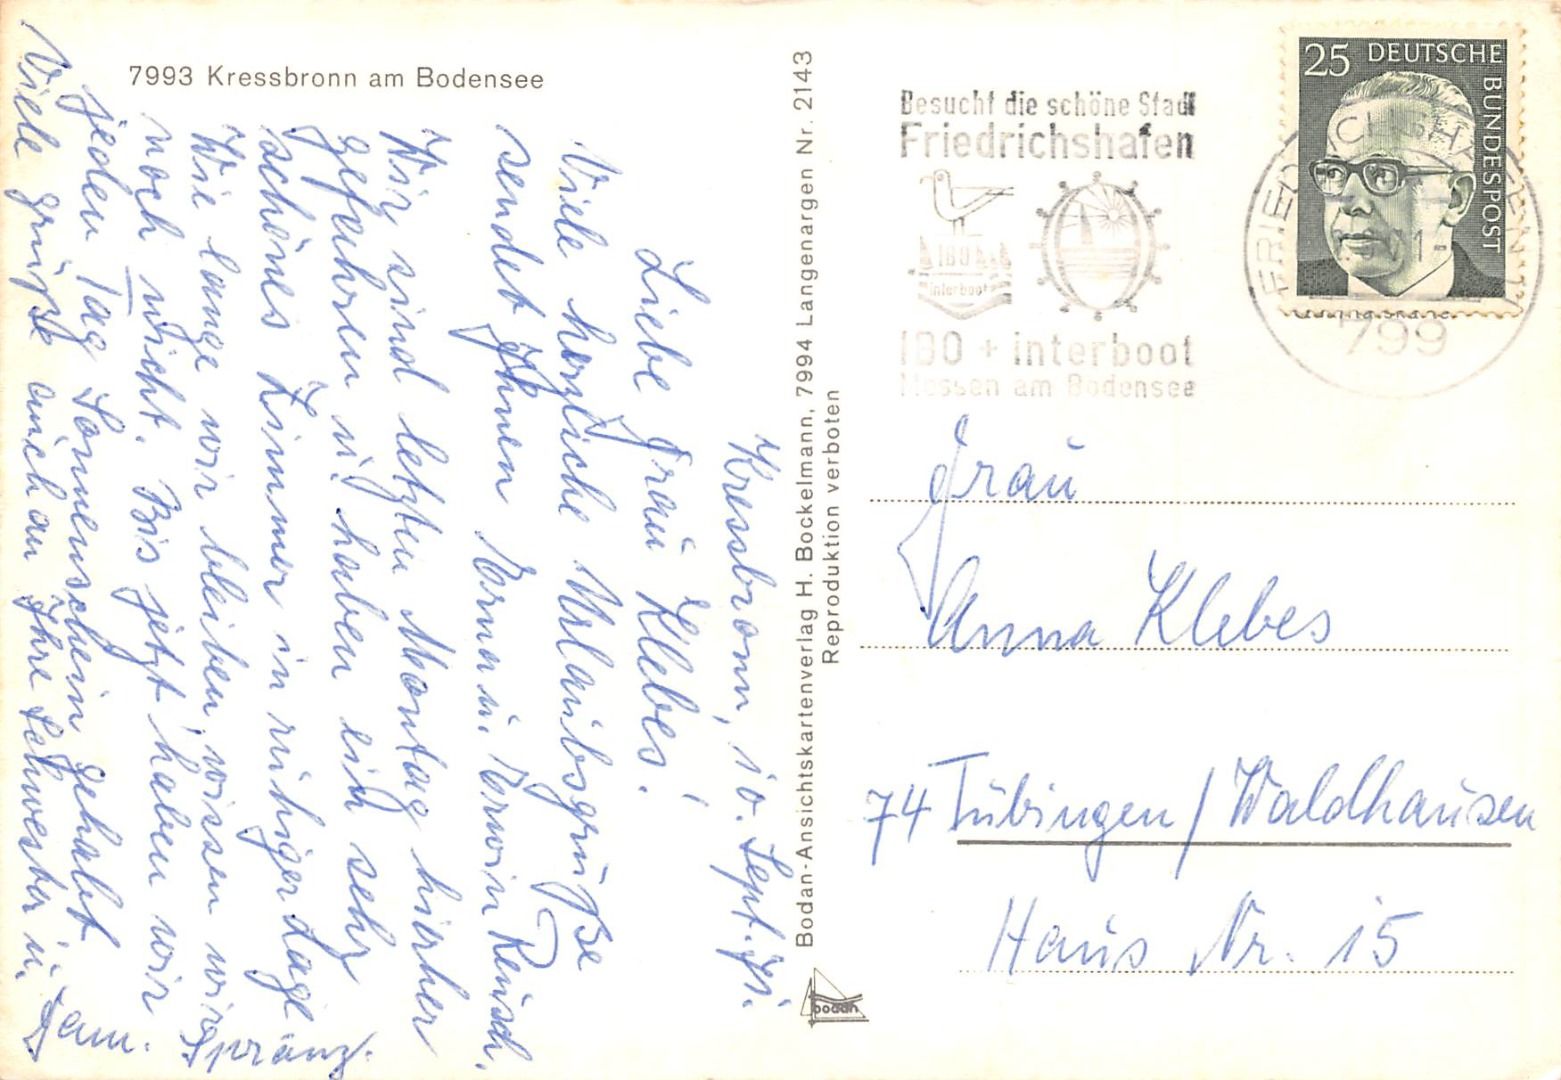 7993 Kressbronn am Bodensee
Kressbronn, 10. Sept. 71.
Liebe Frau Klebes!
Viele herzliche Urlaubsgrüße
sendet Ihnen Erna u. Erwin Reusch.
Wir sind letzten Montag hierher
gefahren u. haben ein sehr
schönes Zimmer in ruhiger Lage.
Wie lange wir bleiben, wissen wir
noch nicht. Bis jetzt haben wir
jeden Tag Sonnenschein gehabt.
Viele Grüße auch an Ihre Schwester u.
Fam. Spranz.
Bodan-Ansichtskartenverlag H. Bockelmann, 7994 Langenargen Nr. 2143
Reproduktion verboten
bodan
Besucht die schöne Stadt
Friedrichshafen
IBO
interboot
IBO + interboot
Messen am Bodensee
25 DEUTSCHE BUNDESPOST
FRIEDRICHSHAFEN 1
799
Frau
Anna Klebes
74 Tübingen / Waldhausen
Haus Nr. 15